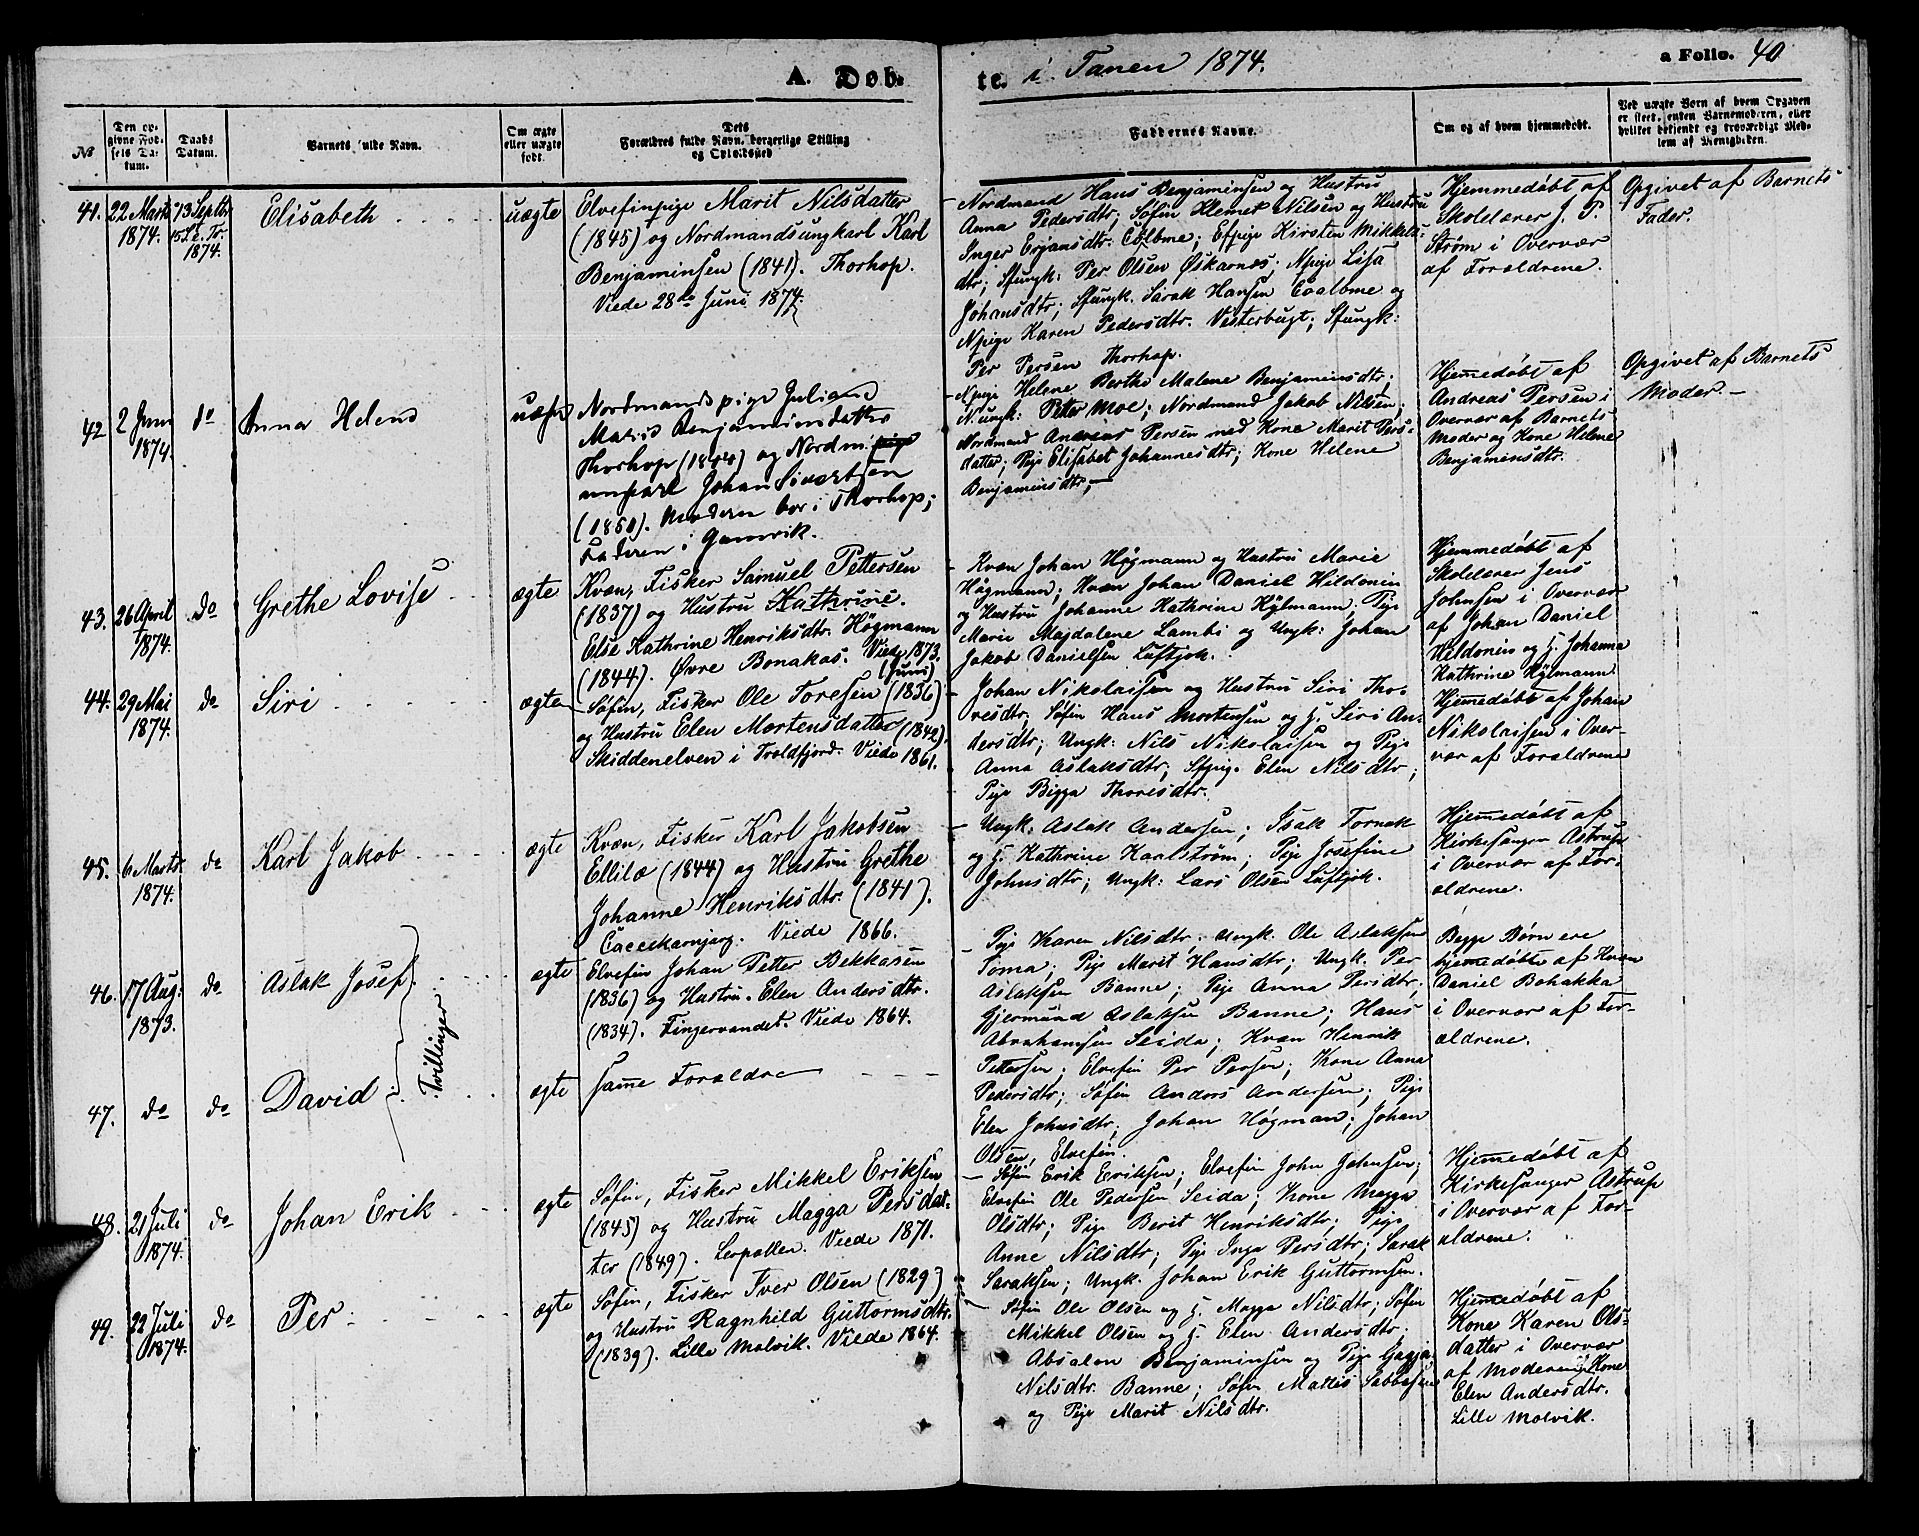 A. Døb-
te. i Tanen 1874.
a Folio. 40
No
Den op-
givne Fød-
sels Da-
tum.
Daabs
Datum.
Barnets fulde Navn.
Om ægte
eller uægte
født.
Dets
Forældres fulde Navn, borgerlige Stilling
og Opholdssted
Faddernes Navne.
Om og af hvem hjemmedøbt.
Ved uægte Børn af hvem Opgaven
er skeet, enten Barnemoderen, eller
hvilket bekjendt og troværdigt Med-
lem af Menigheden.
41.
22 Marts
1874.
13 Septbr
15 S. e. Tr.
1874.
Elisabeth
uægte
Elvefinpige Marit Nilsdatter
(1845) og Nordmandsungkarl Karl
Benjaminsen (1841). Thorhop.
Viede 28de Juni 1874.
Nordmand Hans Benjaminsen og Hustru
Anna Pedersdtr; Søfin Klemet Nilsen og Hustru
Inger Erjansdtr: Coalbme; Efpige Kirsten Mikkels-
dtr; Sfungk: Per Olsen Øskarnæs; Npige Lisa
Johansdtr; Sfungk. Sarak Hansen Coalbme og
Npige Karen Pedersdtr. Vesterbugt; Sfungk:
Per Persen Thorhop.
Hjemmedøbt af
Skolelærer J. P.
Strøm i Overvær
af Forældrene.
Opgivet af Barnets
Fader.
42
2 Juni
1874.
do
Anna Helene
uægte
Nordmandspige Juliane
Marie Benjaminsdatter
Thorhop (1844) og Nordm: pige
ungkarl Johan Sivertsen
(1850). Moderen bor i Thorhop;
Faderen i Gamvik.
Npige Helene Berthe Malene Benjaminsdtr;
N.ungk: Petter Moe; Nordmand Jakob Nilsen;
Nordmand Andreas Persen med Kone Marit Pers-
datter; Pige Elisabet Johannesdtr; Kone Helene
Benjaminsdtr,
Hjemmedøbt af
Andreas Persen i
Overvær af Barnets
Moder og Kone Helene
Benjaminsdtr.
Opgivet af Barnets
Moder.
43.
26 April
1874.
do
Grethe Lovise
ægte
Kvæn, Fisker Samuel Pettersen
(1837) og Hustru Kathrine.
Else Kathrine Henriksdtr. Högmann
(1844). Øvre Bonakas. Viede 1873.
(Juni)
Kvæn Johan Högmann og Hustru Marie
Högmann; Kvæn Johan Daniel Hildonin
og Hustru Johanne Kathrine Hylmann. Pige
Marie Magdalene Lambi og Ungk: Johan
Jakob Danielsen Luftjok.
Hjemmedøbt af
Skolelærer Jens
Johnsen i Overvær
af Johan Daniel
Hildonin og H. Johanna
Kathrine Hylmann
44.
29 Mai
1874.
do
Siri
ægte
Søfin, Fisker Ole Toresen (1836)
og Hustru Elen Mortensdatter (1842).
Skiddenelven i Troldfjord. Viede 1861.
Johan Nikolaisen og Hustru Siri Tho-
resdtr; Søfin Hans Mortensen og H. Siri An-
dersdtr; Ungk: Nils Nikolaisen og Pige
Anna Aslaksdtr; Sfpig. Elen Nilsdtr;
Pige Bigga Thoresdtr.
Hjemmedøbt af Johan
Nikolaisen i Over-
vær af Forældrene
45.
6 Marts
1874.
do
Karl Jakob
ægte
Kvæn, Fisker Karl Jakobsen
Ellilæ (1844) og Hustru Grethe
Johanne Henriksdtr. (1841).
Caceskarnjarg. Viede 1866.
Ungk: Aslak Andersen; Isak Tornæk
og H. Kathrine Kaalstrøm; Pige Josefine
Johnsdtr; Ungk: Lars Olsen Luftjok.
Hjemmedøbt af
Kirkesanger Astrup
i Overvær af For-
ældrene.
46.
17 Aug:
1873.
do
Aslak Josef
Tvillinger
ægte
Elvefin Johan Petter Bekkasen
(1836) og Hustru. Elen Andersdtr.
(1834). Fingervandet. Viede 1864.
Pige Karen Nilsdtr. Ungk. Ole Aslaksen
Soma; Pige Marit Hansdtr; Ungk. Per
Aslaksen Banne; Pige Anna Persdtr;
Gjermund Aslaksen Banne; Hans
Abrahamsen Seida; Kvæn Henrik
Pettersen; Elvefin Per Persen; Kone Anna
Pedersdtr; Søfin Anders Andersen; Pige
Elen Johnsdtr; Johan Högman; Johan
Olsen, Elvefin.
Begge Børn ere
hjemmedøbte af Kvæn
Daniel Bohakka
i Overvær af For-
ældrene.
47.
do
do
David
ægte
samme Forældre
48.
21 Juli
1874.
do
Johan Erik
ægte
Søfin, Fisker Mikkel Eriksen
(1845) og Hustru Magga Persdat-
ter (1849). Lerpollen. Viede 1871.
Søfin Erik Eriksen; Elvefin John Johnsen;
Elvefin Ole Pedersen Seida; Kone Magga
Olsdtr; Pige Berit Henriksdtr; Pige
Anne Nilsdtr; Pige Inga Persdtr; Sarak
Saraksen; Ungk. Johan Erik Guttormsen.
Hjemmedøbt af
Kirkesanger Astrup
i Overvær af For-
ældrene.
49.
22 Juli
1874.
do
Per
ægte
Søfin, Fisker Iver Olsen (1829)
og Hustru Ragnhild Guttormsdtr.
(1839). Lille Molvik. Viede 1864.
Søfin Ole Olsen og H. Magga Nilsdtr; Søfin
Mikkel Olsen og H. Elen Andersdtr.
Absalon Benjaminsen og Pige Gagja
Nilsdtr. Banne; Søfin Mattis Sabbasen
og Pige Marit Nilsdtr.
Hjemmedøbt af
Kone Karen Ols-
datter i Overvær
af Moderen og Kone
Elen Andersdtr.
Lille Molvik.